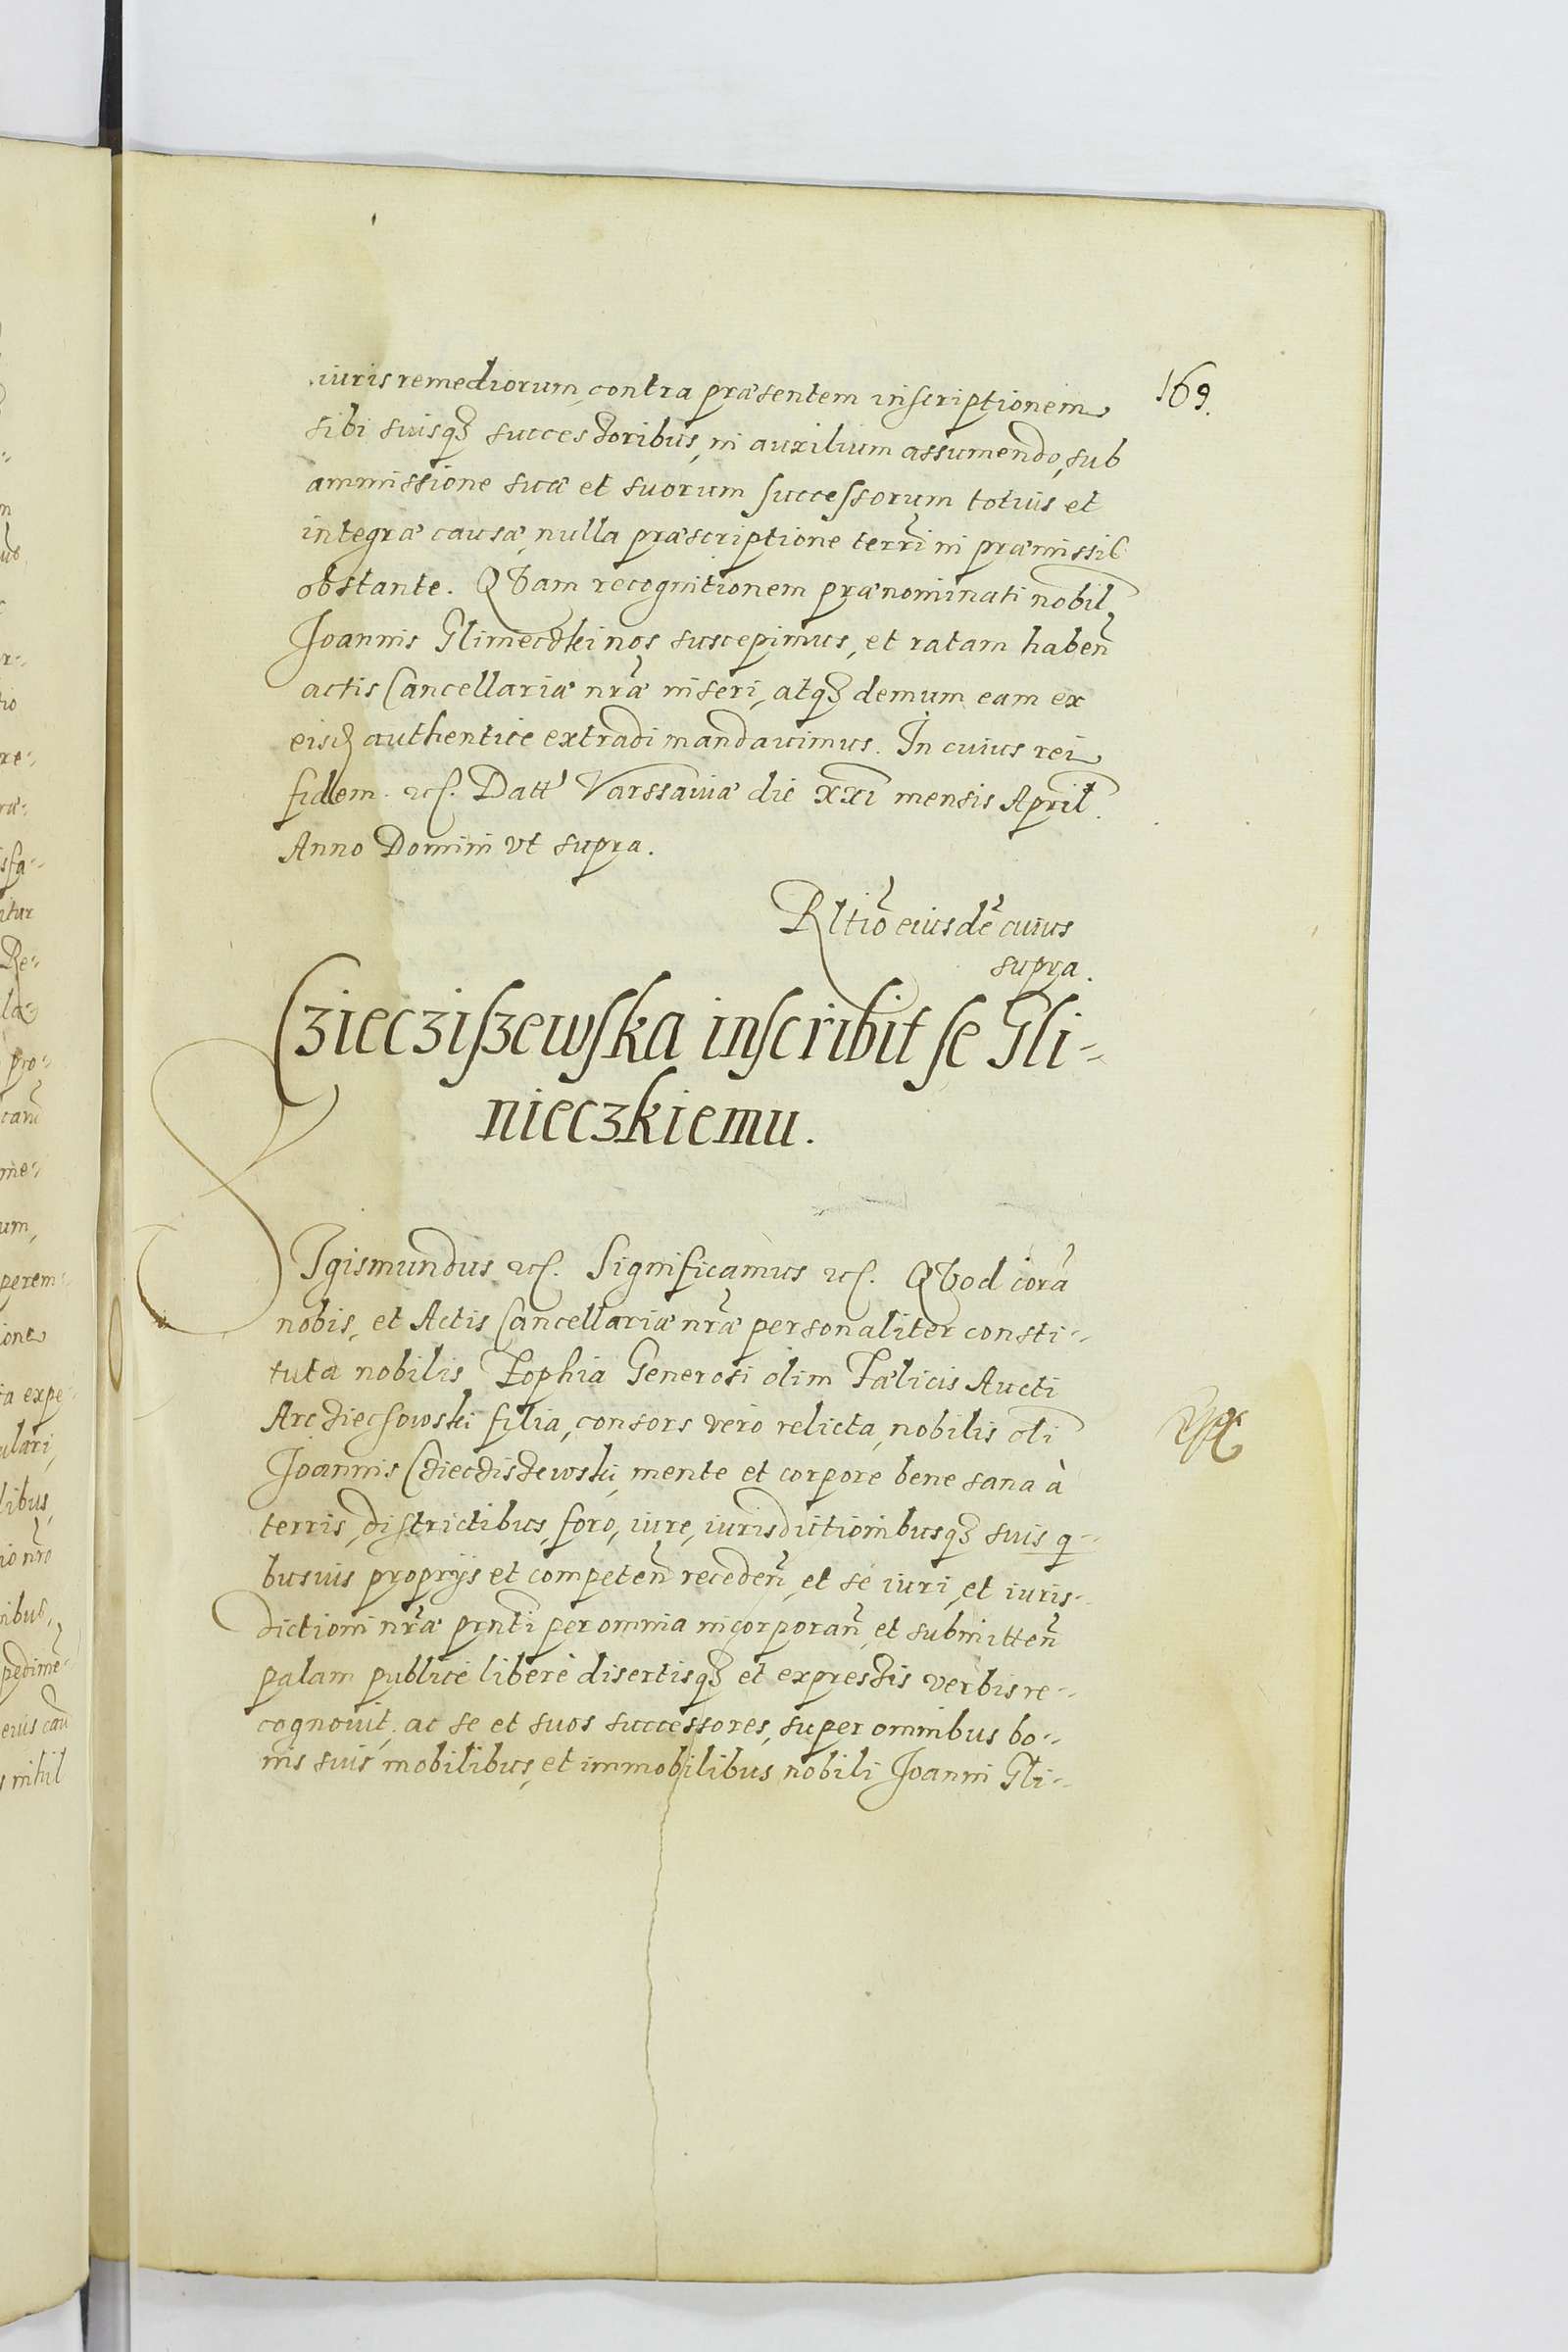 169.
iuris remediorum, contra præsentem inscriptionem
sibi suisq3 successoribus, in auxilium assumendo, sub
ammissione suæ et suorum successorum totius et
integræ causæ, nulla præscriptione terrĩ in præmissis
obstante. Quam recognitionem prænominati nobil
Joannis Glinieczki nos suscepimus, et ratam habeñ
actis Cancellariæ nr̃æ inseri, atq3 demum eam ex
eisd authentice extradi mandauimus. In cuius rei
fidem. etc. Datt Varssauiæ die XXI mensis April.
Anno Domini vt supra.
Rltiõ eiusdẽ cuius
supra.
Cziecziszewska inscribit se Gli-
nieczkiemu.
Sigismundus etc. Significamus etc. Quod corã
nobis, et Actis Cancellariæ nr̃æ personaliter consti-
tuta nobilis Zophia Generosi olim Fælicis Aucti
Arcziechowski filia, consors vero relicta, nobilis oli
Joannis Cziecziszewski, mente et corpore bene sana à
terris, districtibus, foro, iure, iurisdictionibusq3 suis q-
busuis proprijs et competeñ recedeñ, et se iuri, et iuris-
dictioni nr̃æ prnti per omnia incorporañ, et submitteñ
palam publicè liberè disertisq3 et expressis verbis re-
cognouit, ac se et suos successores, super omnibus bo-
nis suis mobilibus, et immobilibus, nobili Joanni Gli-